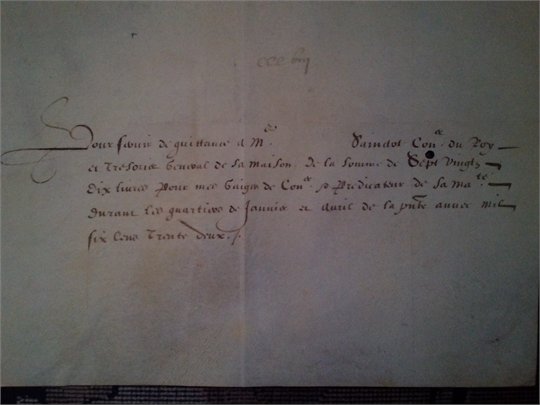 Pour servir de quittance a Mre
Sanidot Coner du Roy
et Tresorier General de sa maison de la somme de Sept Vingtz
dix livres pour mes Gaiges de Coner et Predicateur de sa Mate
durant les quartiers de Janvier et Avril de la pnte annee Mil
six Cens Trente deux